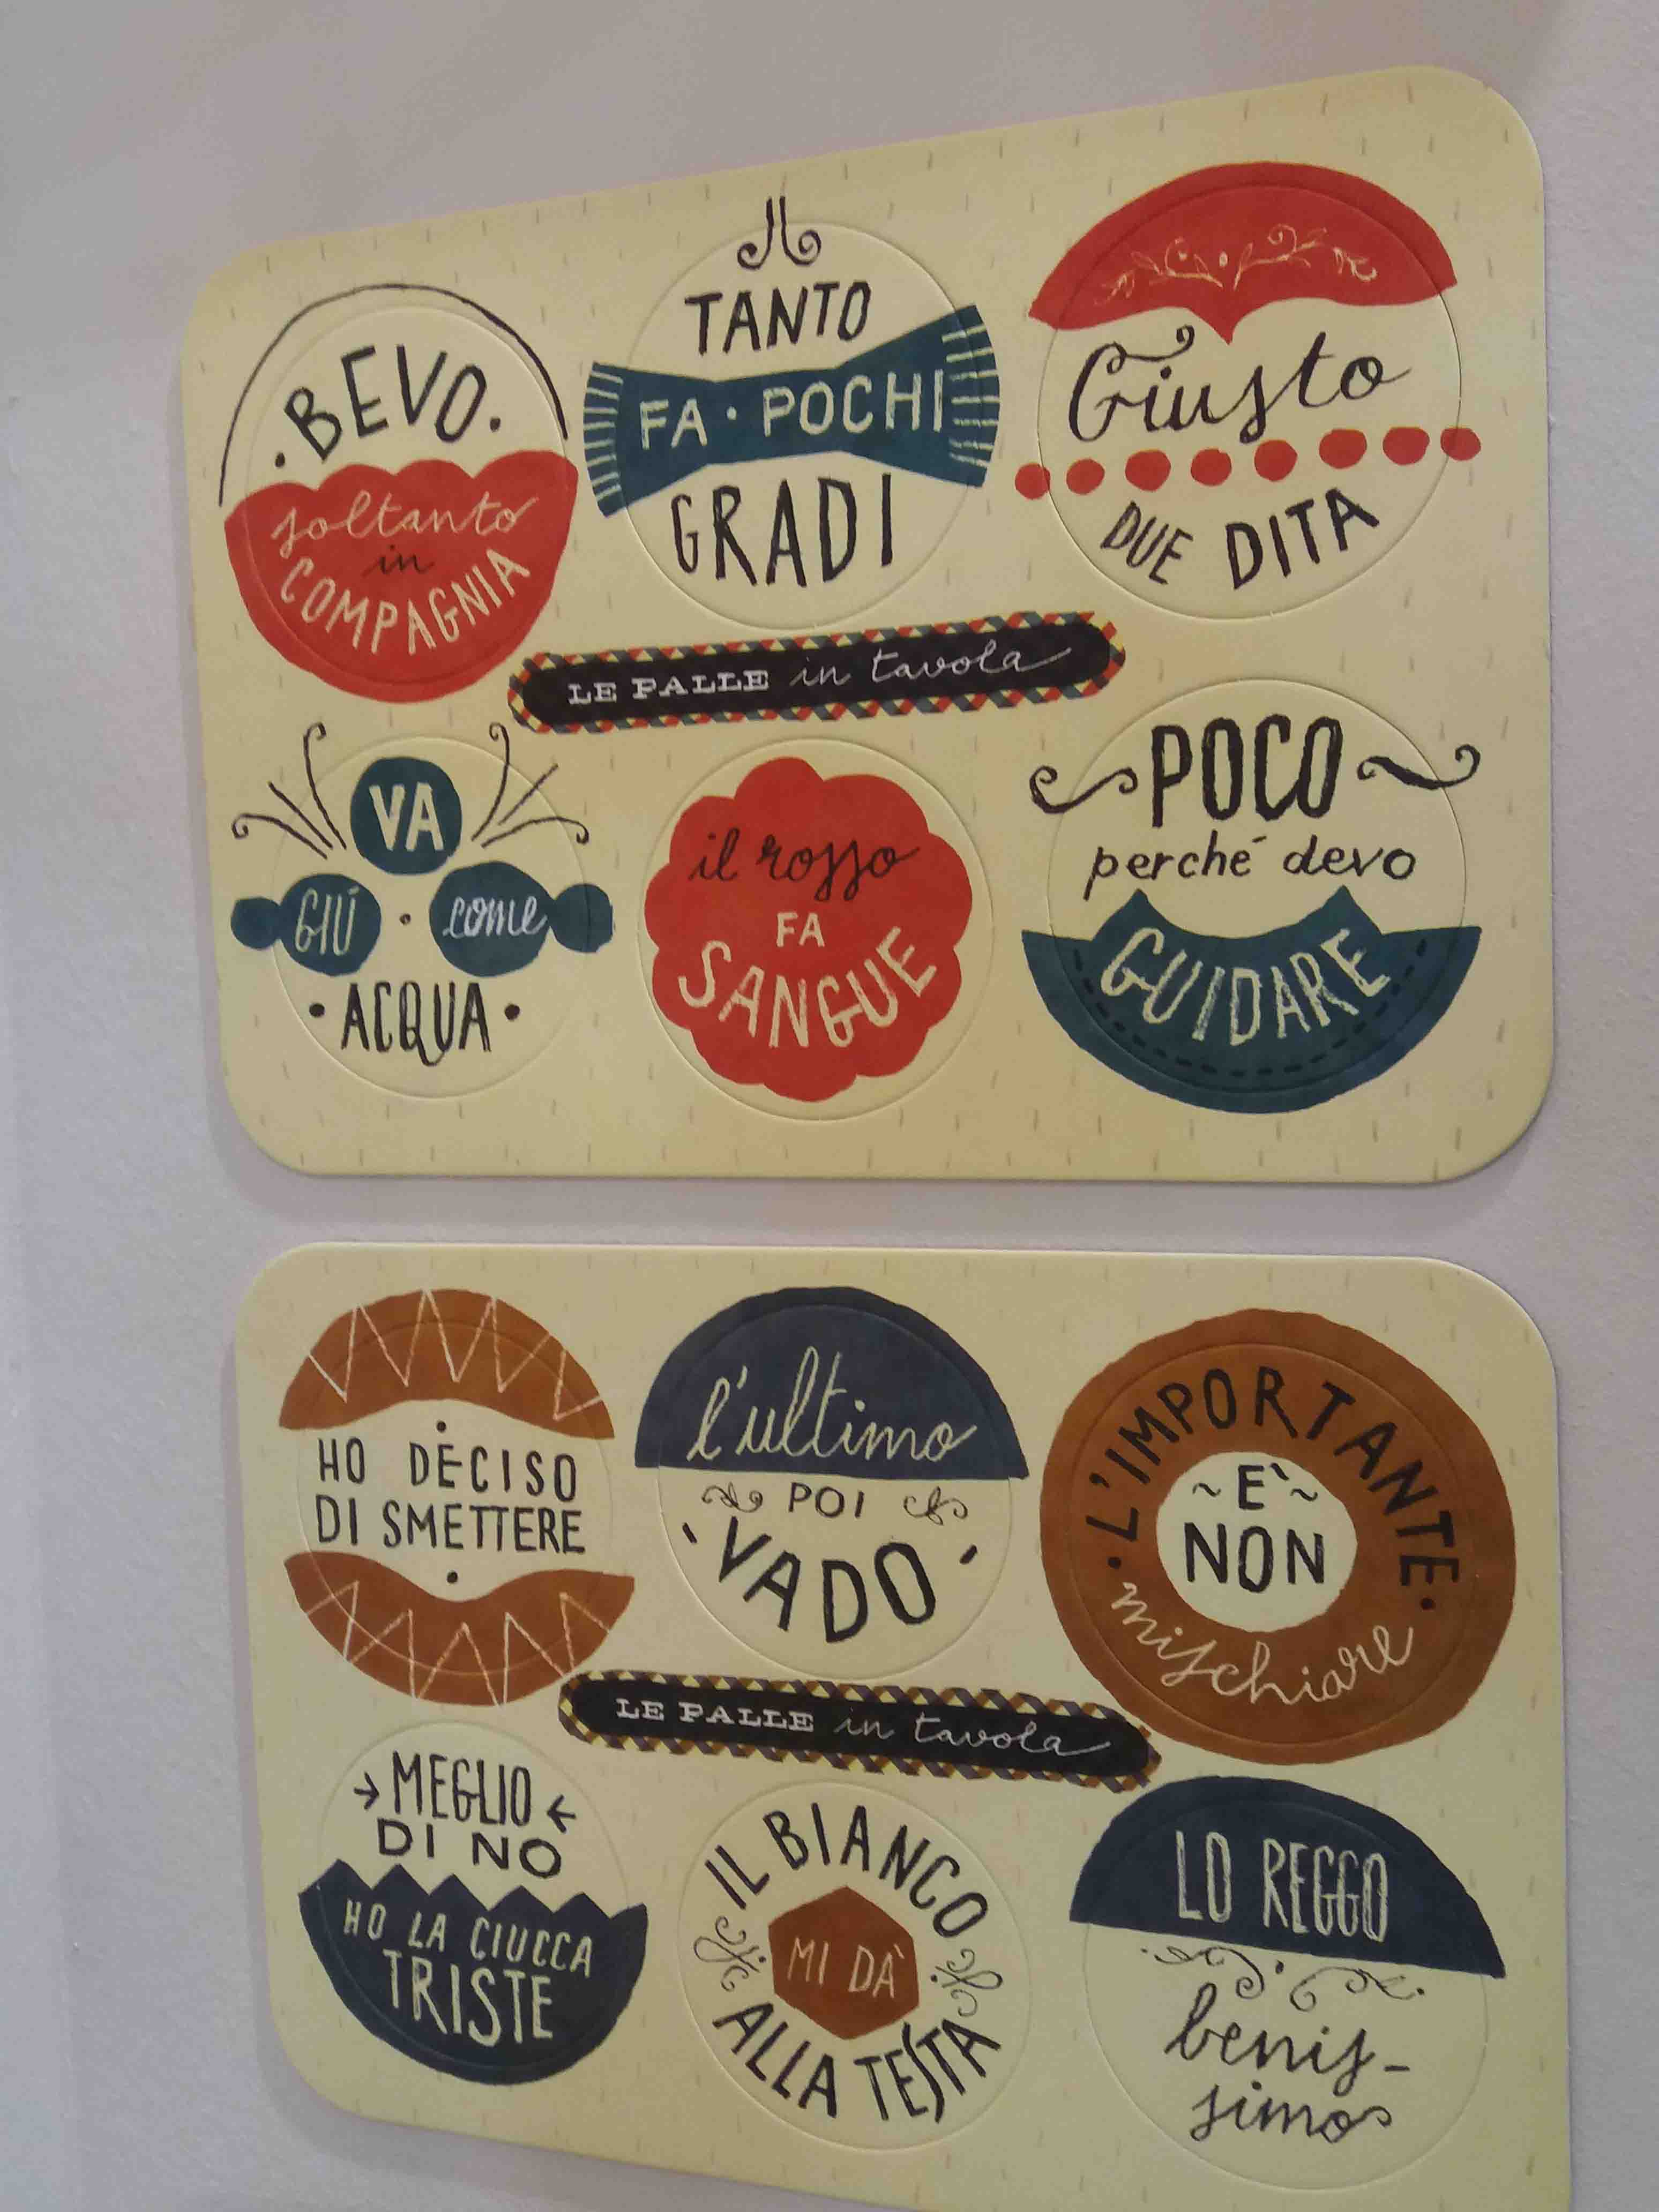 • BEVO •
soltanto
in
COMPAGNIA
TANTO
FA • POCHI
GRADI
Giusto
DUE DITA
LE PALLE in tavola
VA
GIÚ • come
• ACQUA •
il rosso
FA
SANGUE
POCO
perché devo
GUIDARE
HO DECISO
DI SMETTERE
l'ultimo
POI
VADO
• L'IMPORTANTE •
~ E' ~
NON
mischiare
LE PALLE in tavola
→ MEGLIO ←
DI NO
HO LA CIUCCA
TRISTE
IL BIANCO
MI DÀ
ALLA TESTA
LO REGGO
benis-
simo